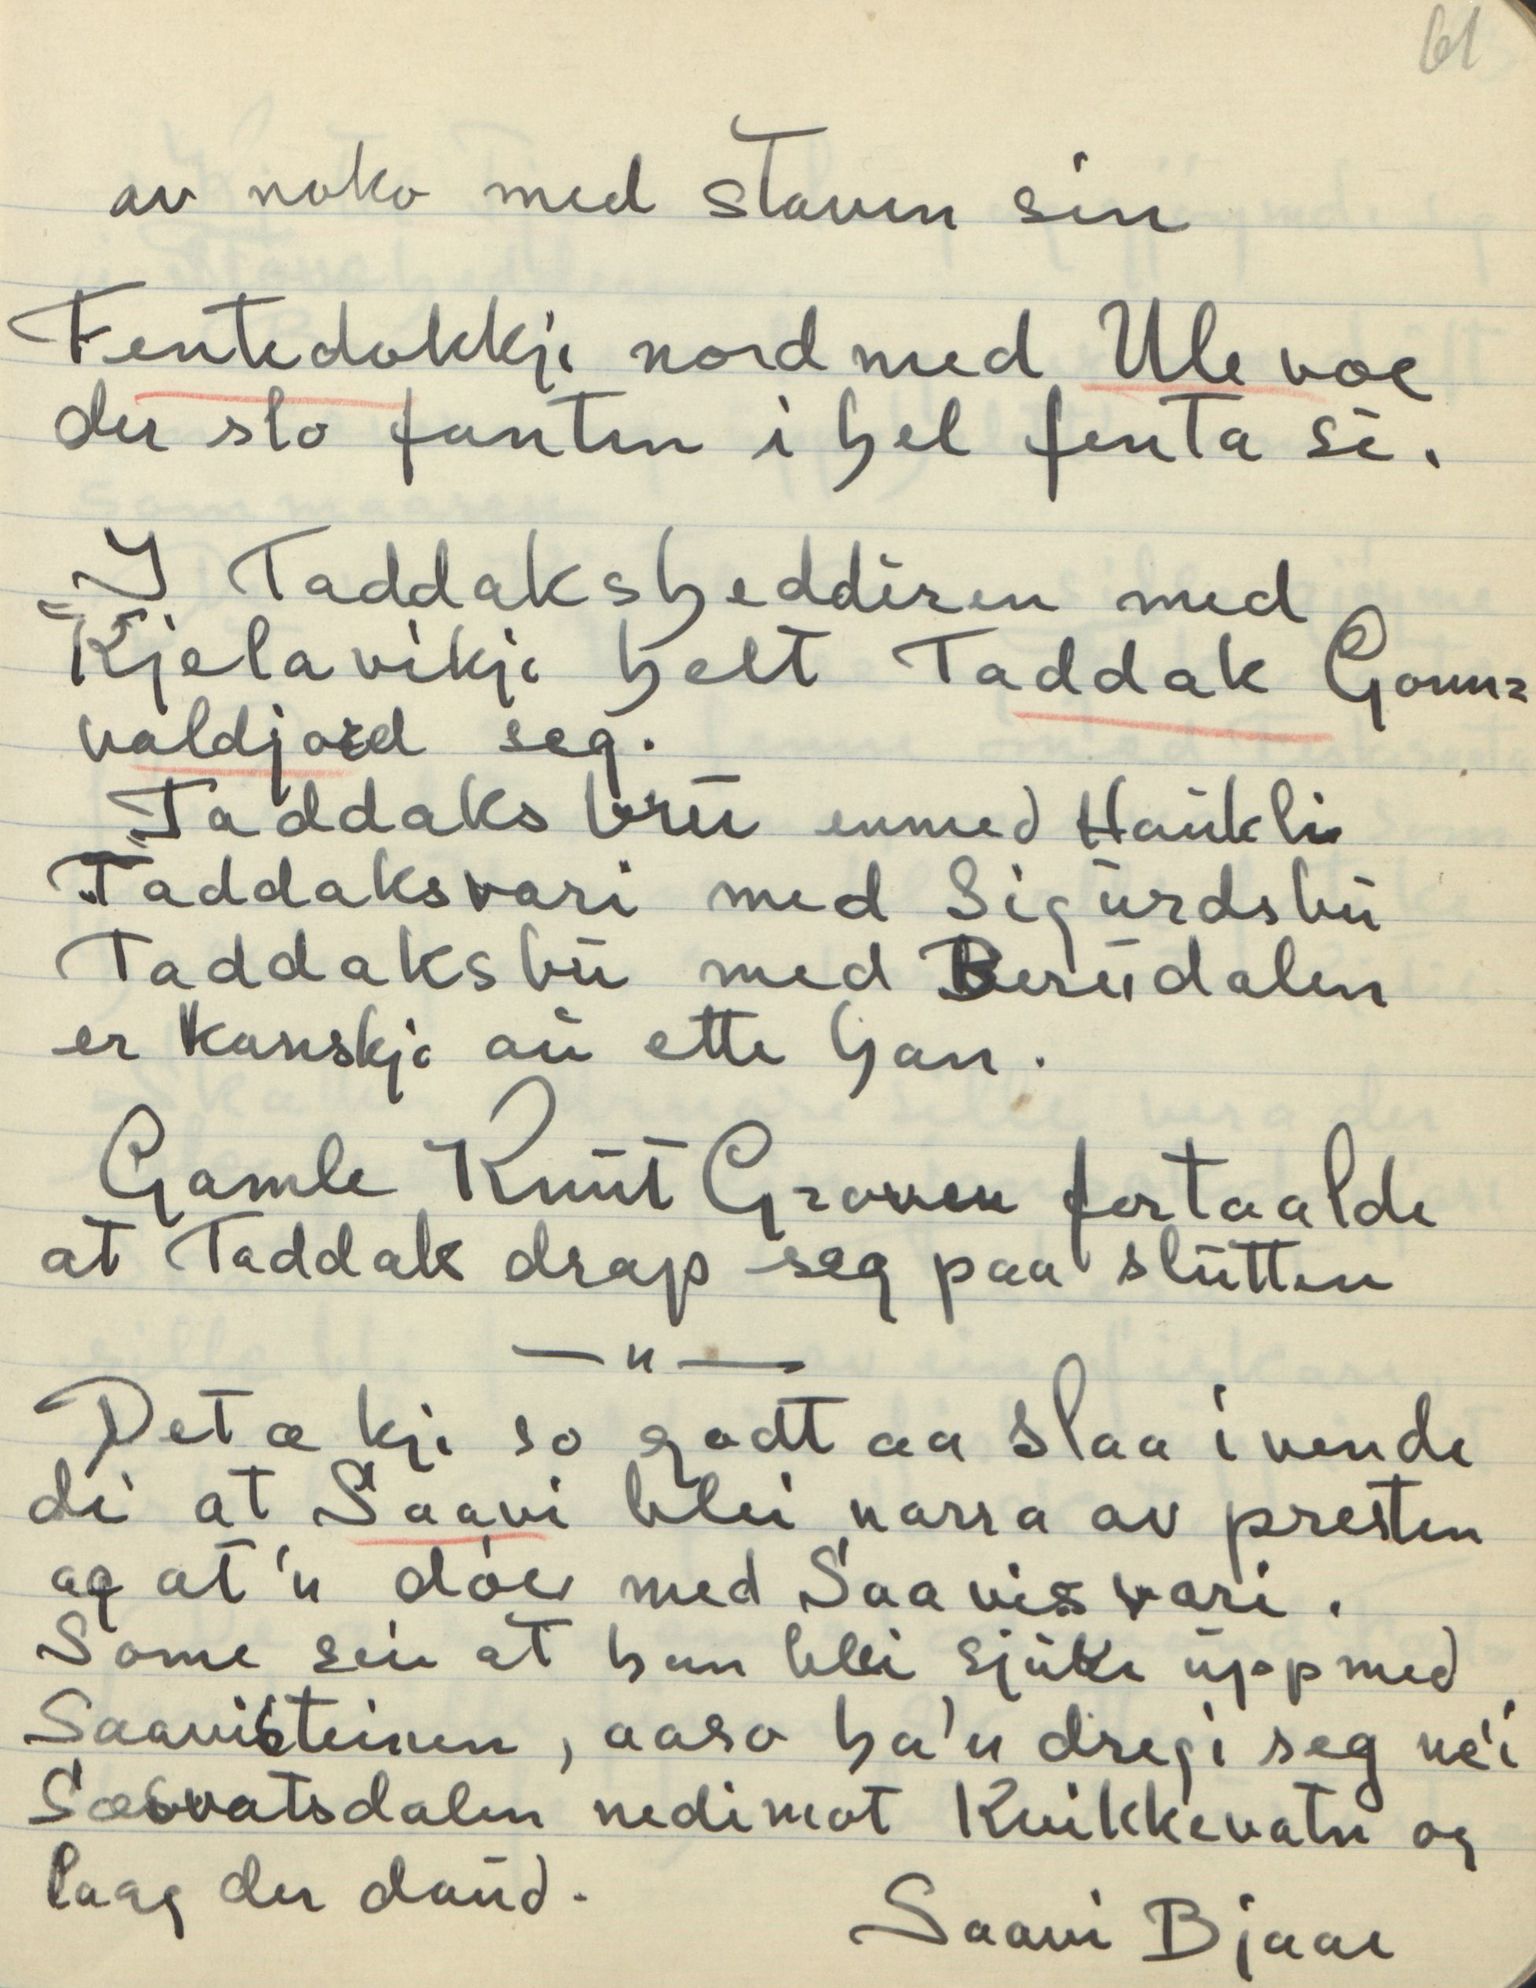 61
av noko med staven sin
Fentedokkji nordmed Ulevoe
der slo fanten i hel fenta si.
I Taddaksheddiren med
Kjelavikji helt Taddak Gonn=
valdjord seg.
Taddaksbru enmed Haukli
Taddaksvari med Sigurdsbu
Taddaksbu med Berudalen
er kanskje au ette han.
Gamle Knut Groven fortaalde
at Taddak drap seg paa slutten
— " —
Det æ kji so godt aa slaa i vende
di at Saavi blei narra av presten
ag at 'n døe med Saavisvari.
Some sei at han blei sjuke uppmed
Saavisteinen, aaso ha'n dregi seg ne'i
Sæsvatsdalen nedimot Kvikkevatn og
laag der daud.
Saavi Bjaae